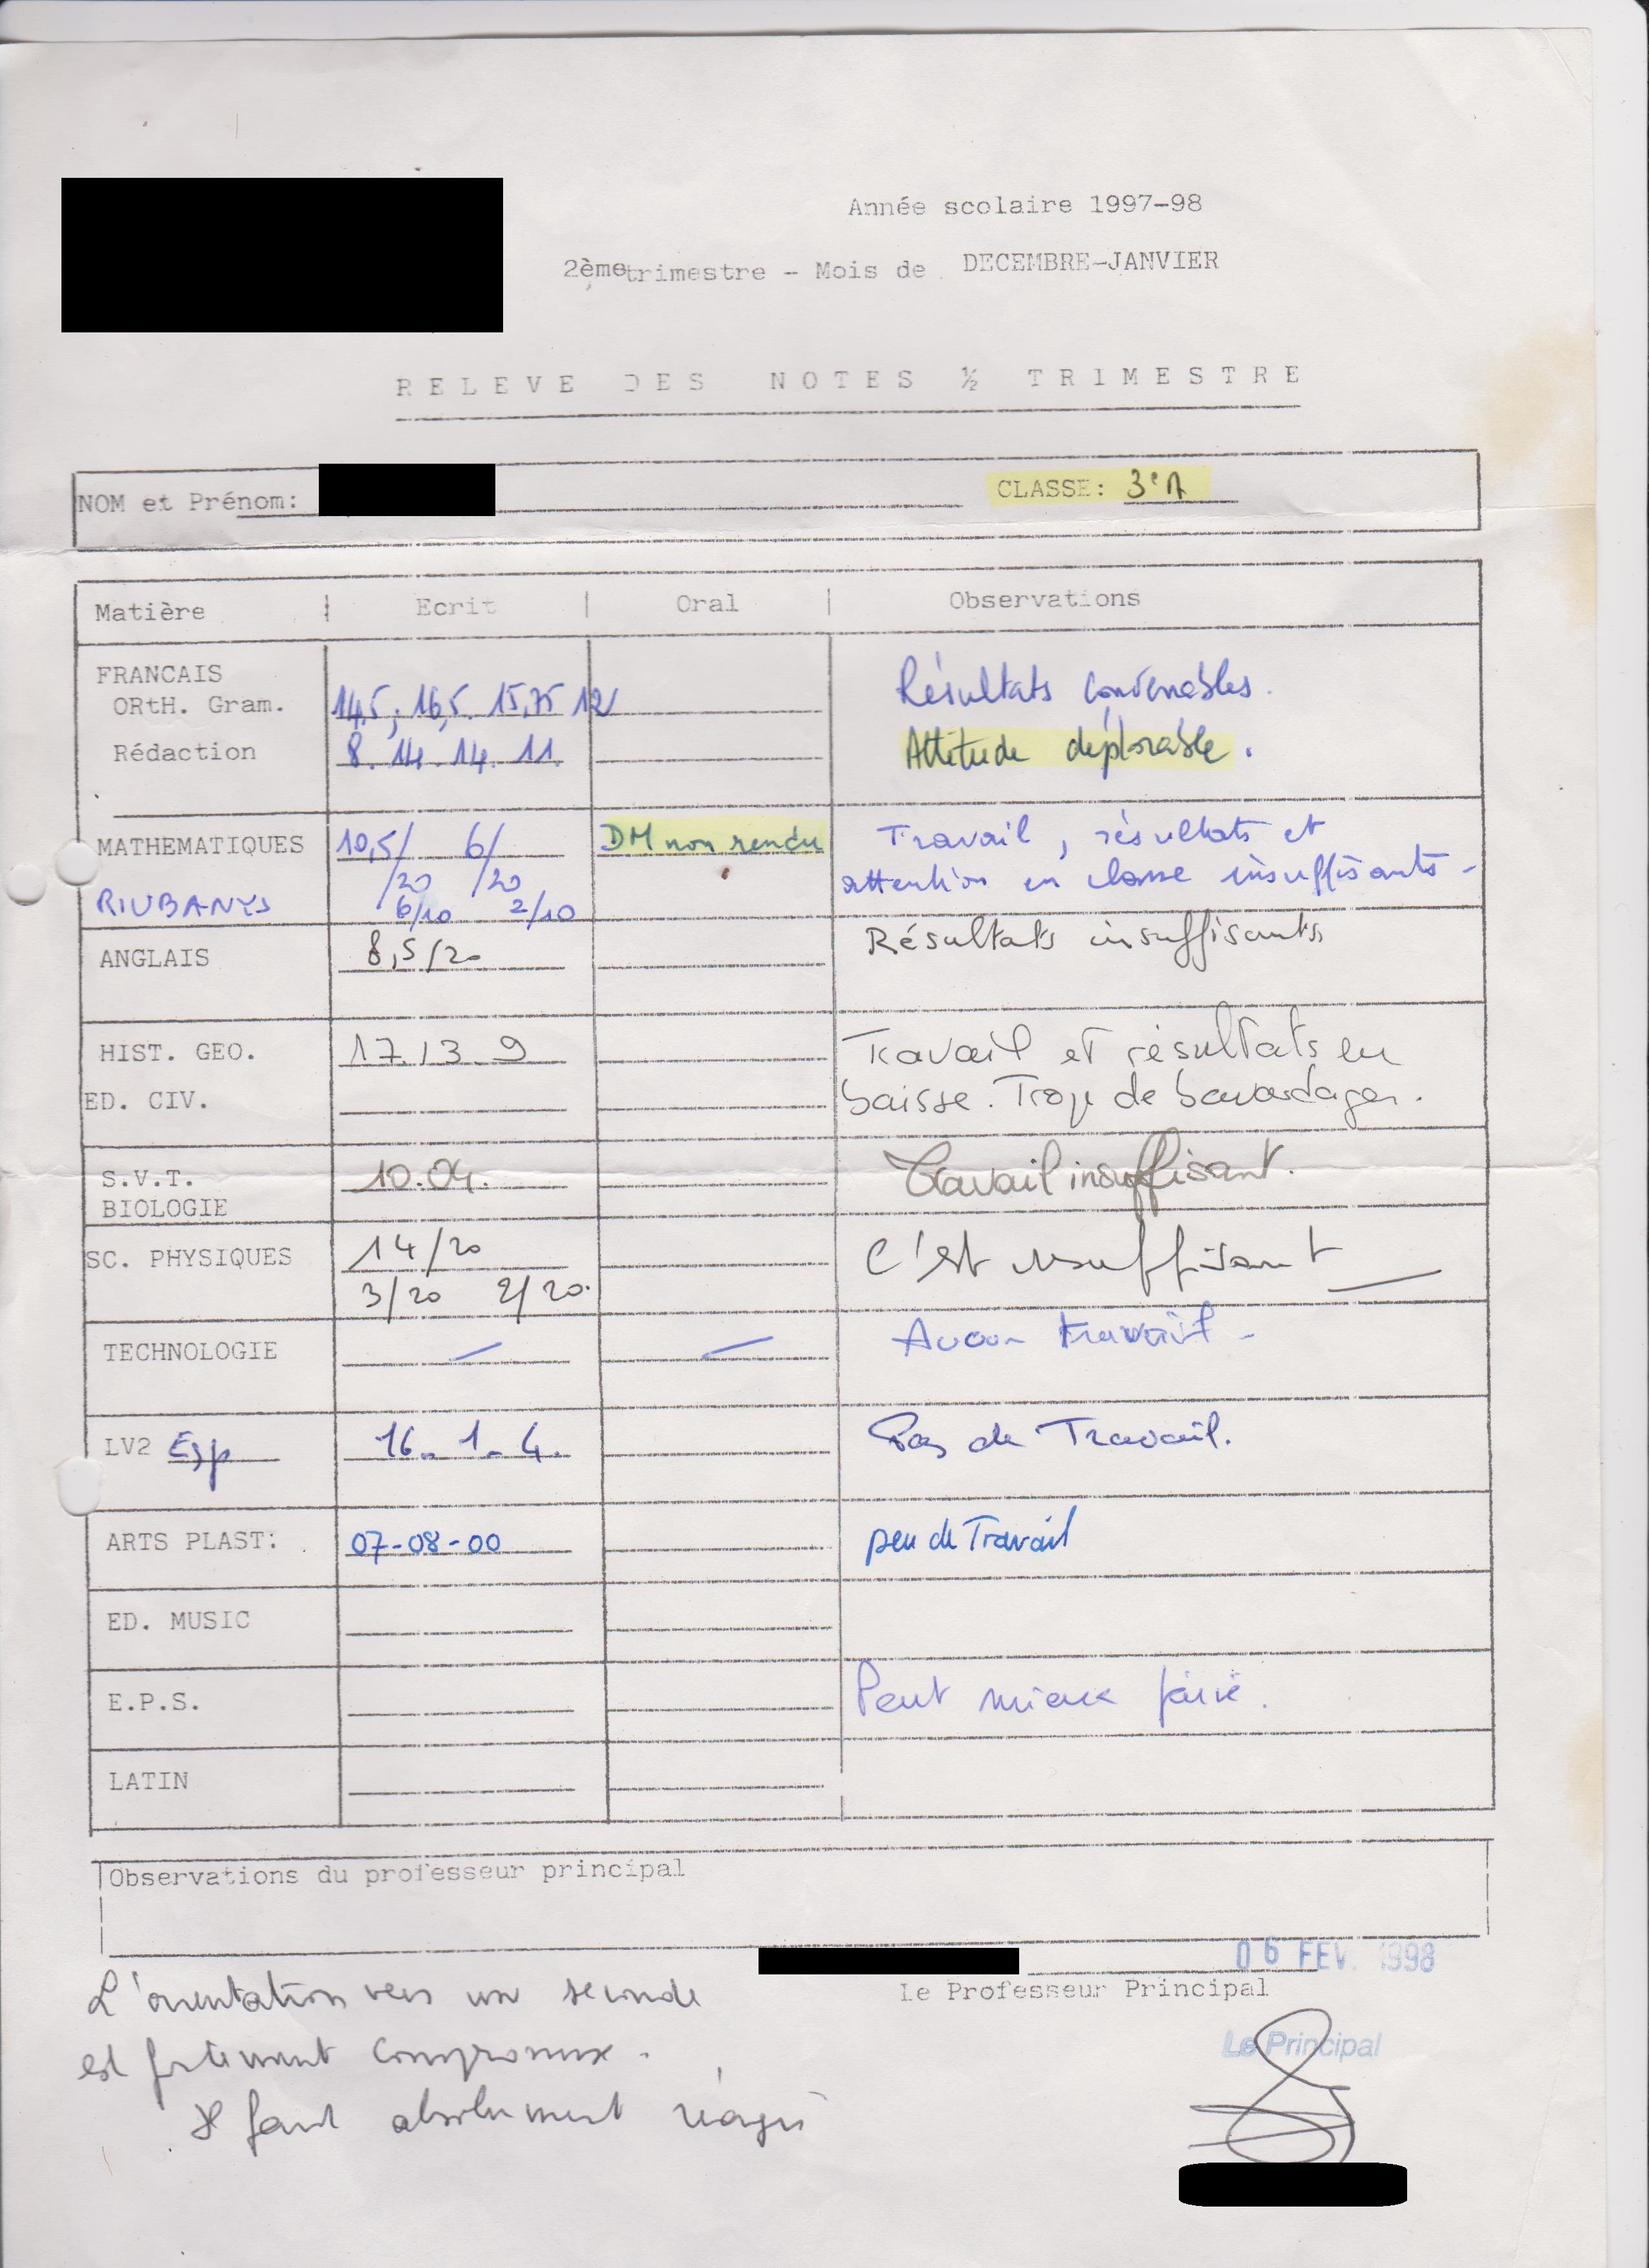 Année scolaire 1997-98
2ème trimestre - Mois de DECEMBRE-JANVIER
RELEVE DES NOTES ½ TRIMESTRE
NOM et Prénom: CLASSE: 3°A
Matière Ecrit Oral Observations
FRANCAIS
ORtH. Gram. 14,5; 16,5. 15,75 12 Résultats convenables.
Rédaction 8. 14. 14. 11. Attitude déplorable.
MATHEMATIQUES 10,5/20 6/20 DM non rendu Travail, résultats et
6/10 2/10 attention en classe insuffisants -
ANGLAIS 8,5/20 Résultats insuffisants
HIST. GEO. 17.13.9 Travail et résultats en
ED. CIV. baisse. Trop de bavardages.
S.V.T. 10.04. Travail insuffisant.
BIOLOGIE
SC. PHYSIQUES 14/20 C'est insuffisant
3/20 2/20.
TECHNOLOGIE Aucun travail -
LV2 Esp 16. 1. 4. Pas de Travail.
ARTS PLAST: 07-08-00 peu de Travail
ED. MUSIC
E.P.S. Peut mieux faire.
LATIN
Observations du professeur principal
06 FEV. 1998
Le Professeur Principal
Le Principal
L'orientation vers une seconde
est fortement compromise.
Il faut absolument réagir